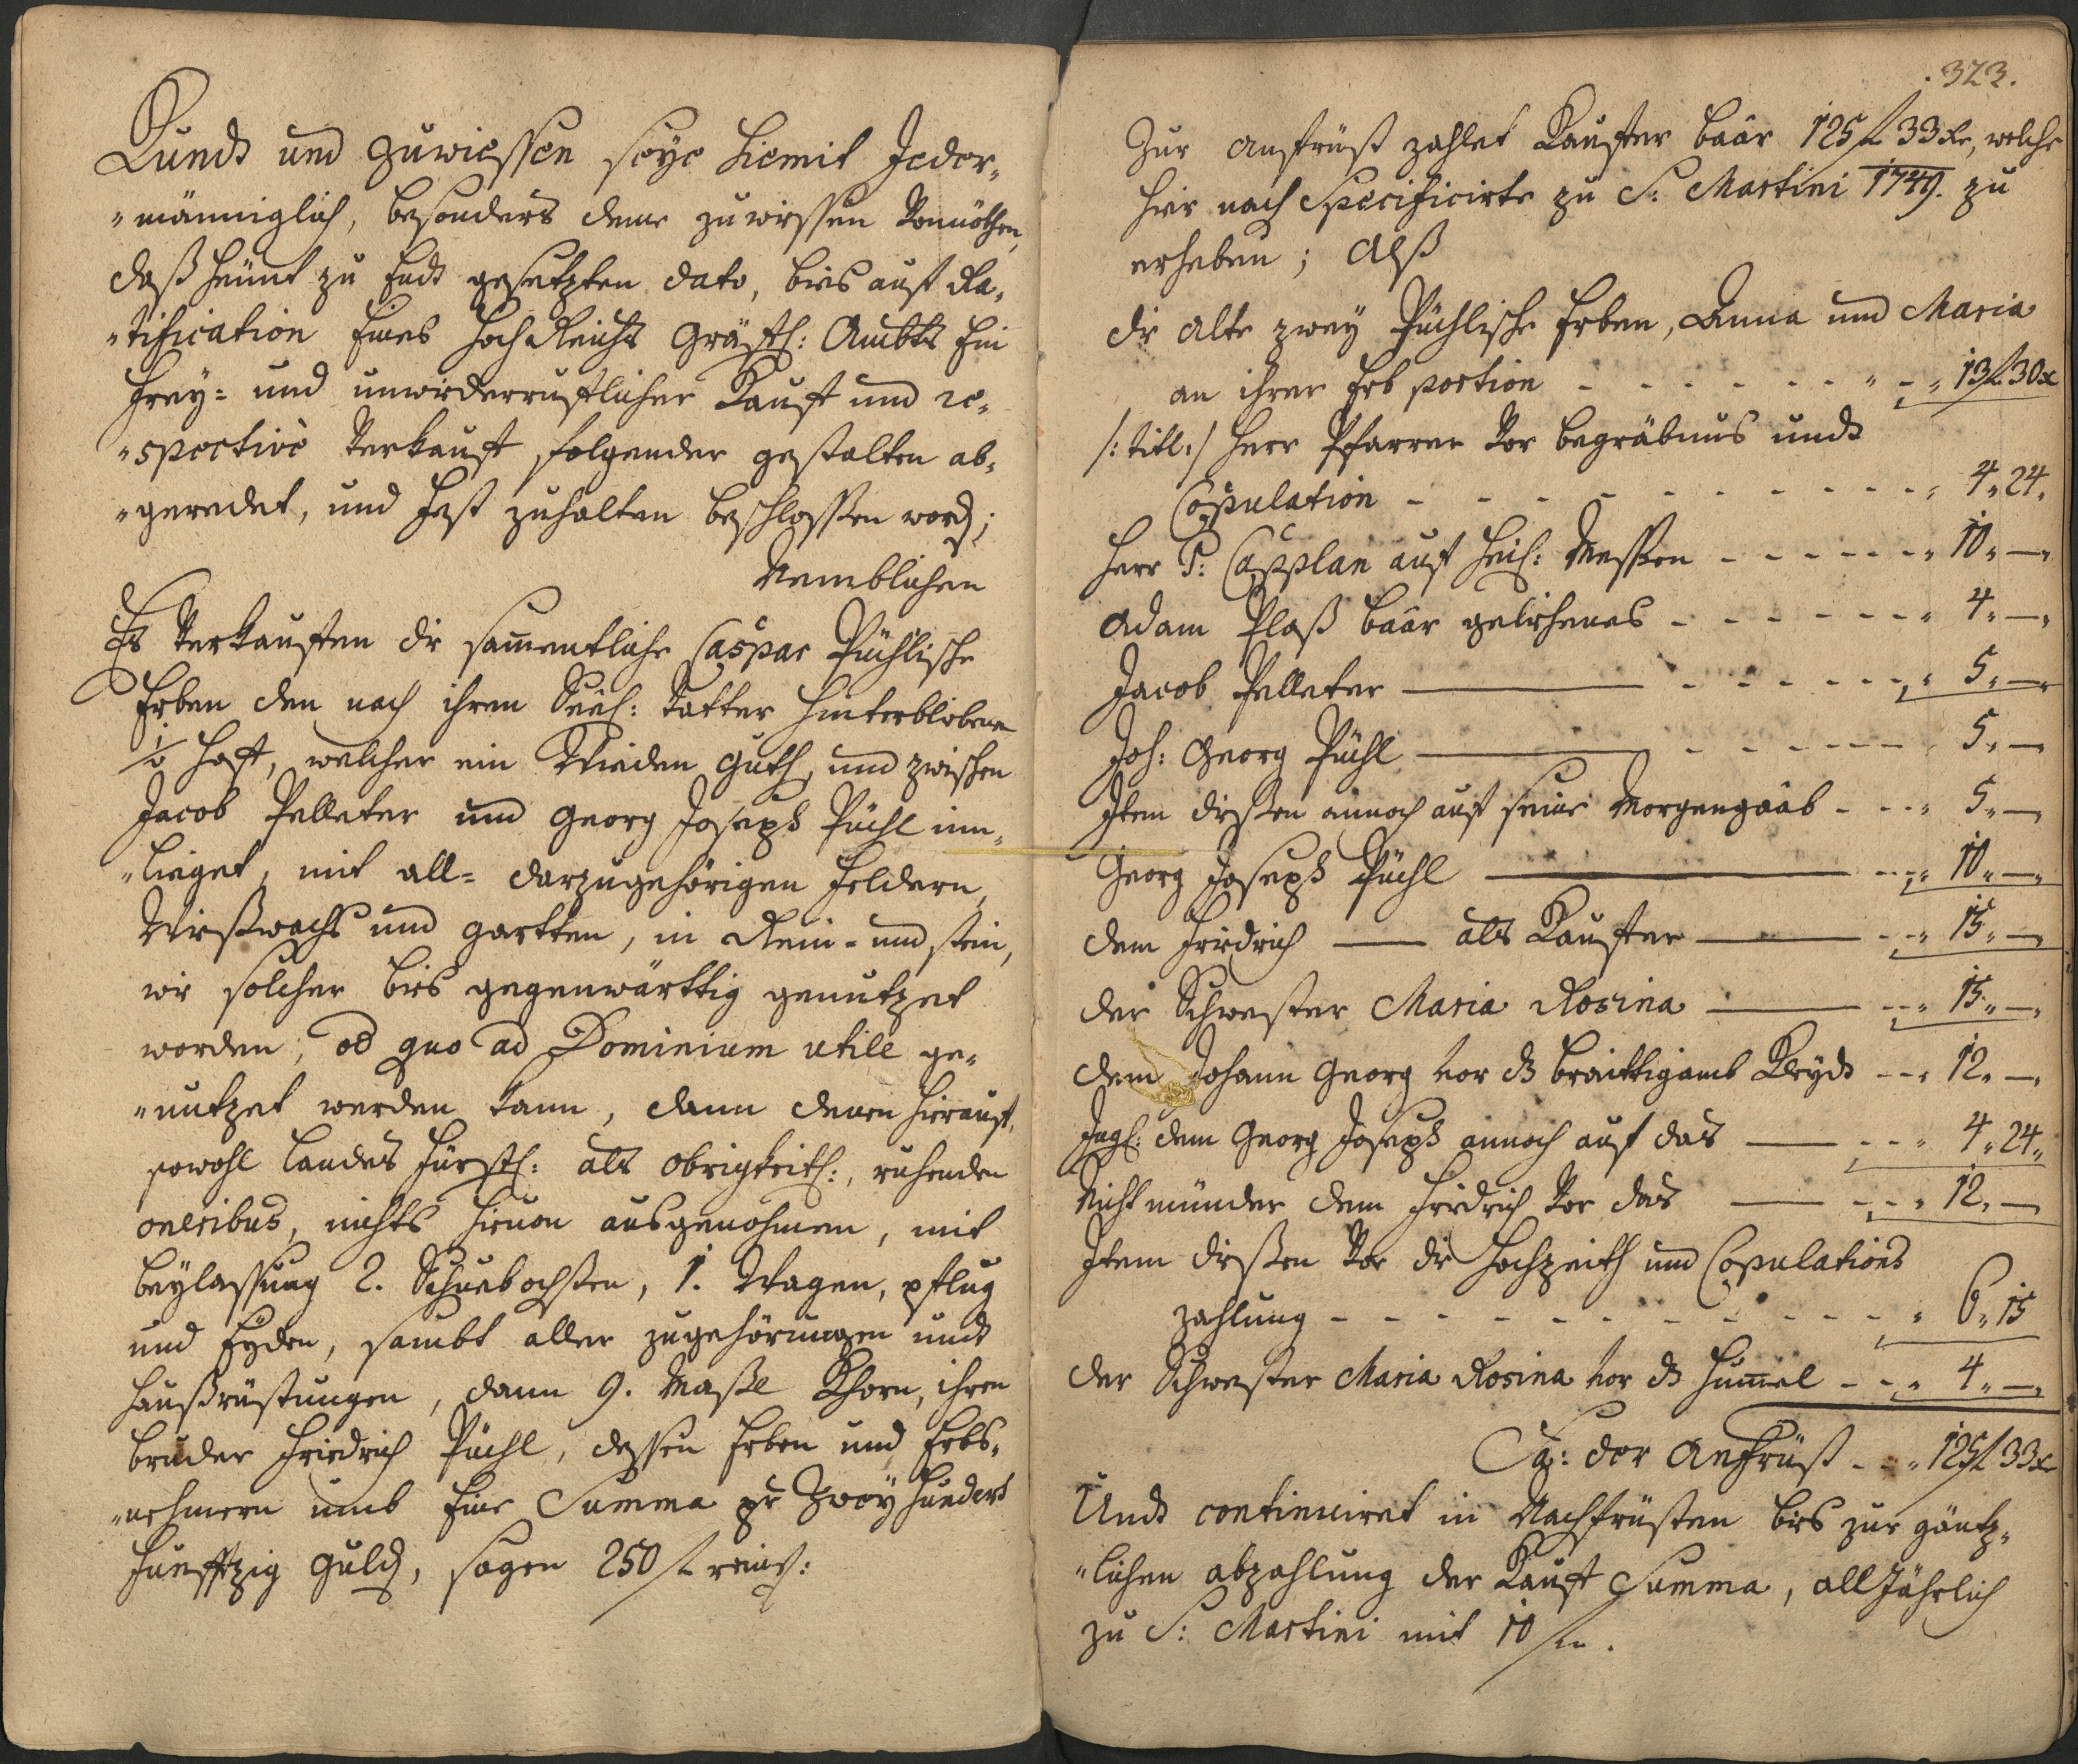 Kundt und zuwiessen seye hiemit Jeder-
"männiglich, besonders deme zuwissen Vonnöthen,
daß heünt zu Endt gesetzten dato, bies auf Ra-
"tification Eines HochReichs Gräfl: Ambts Ein
Frey- und unwiderruflicher Kauf und re-
"spective Verkauf folgender gestalten ab-
"geredet, und Fest zuhalten beschlossen word;
Nemblichen
Es Verkaufen die sam̄entliche Caspar Püchlische
Erben den nach ihren Seel: Vatter hinterblibenen
Hoff, welcher ein Wieden Guth, und zwischen
Jacob Pelleter und Georg Joseph Püchl inn-
"lieget, mit all- darzugehörigen Feldern,
Wießwachs und gartten, in Rein- und stein,
wie solcher bies gegenwärttig genutzet
worden, od quo ad Dominium utile ge-
"nutzet werden kann, dann denen hierauf,
sowohl Landes Fürstl: als obrigkeitl:, ruhenden
oneribus, nichts hievon ausgenohmen, mit
beylassung 2. Schubochsen, 1. Wagen, pflug
und Eyden, sambt aller zugehörungen undt
haußrüstungen, dann 9. Maßl Khorn, ihren
bruder Friedrich Püchl, dessen Erben und Erbs-
"nehmern umb Eine Summa pr Zwey hundert
Fünffzig Guld, sagen 250 f reins:
323.
Zur anfrüst zahlet Kaufer baar 125 f 33 xr, welche
hier nach Specificirte zu S: Martini 1749. zu
erheben; Alß
die alte zwey Püchlische Erben, Anna und Maria
an ihrer Erb portion - - - - - - - - 13 f 30 x
/: titl: / Herr Pfarrer Vor begräbnus undt
Copulation - - - - - - - - - - 4 " 24 "
Herr P: Capplan auf heil: Messen - - - - - - 10 " — "
Adam Plaß baar geliehenes - - - - - - 4 " — "
Jacob Pelleter — - - - - - - 5 " — "
Joh: Georg Püchl — - - - - - - 5 " — "
Item dießen annoch auf seine Morgengaab - - - 5 " — "
Georg Joseph Püchl — - - 10 " — "
dem Friedrich — als Kaufer — - - 15 " — "
der Schwester Maria Rosina — - - 15 " — "
dem Johann Georg vor ds braittigamb Kleydt - - 12 " — "
Ingl: dem Georg Joseph annoch auf das — - - 4 " 24 "
Nicht münder dem Friedrich Vor das — - - 12 " — "
Item dießen Vor die Hochzeith und Copulations
zahlung - - - - - - - - - - 6 " 15
der Schwester Maria Rosina vor ds Hum̄el - - - 4 " — "
Sa: der Anfrüst - - - 125 f 33 xr
Undt continuiret in Nachfrüsten bies zur gäntz-
"lichen abzahlung der Kauf Summa, all Jährlich
zu S: Martini mit 10 f .